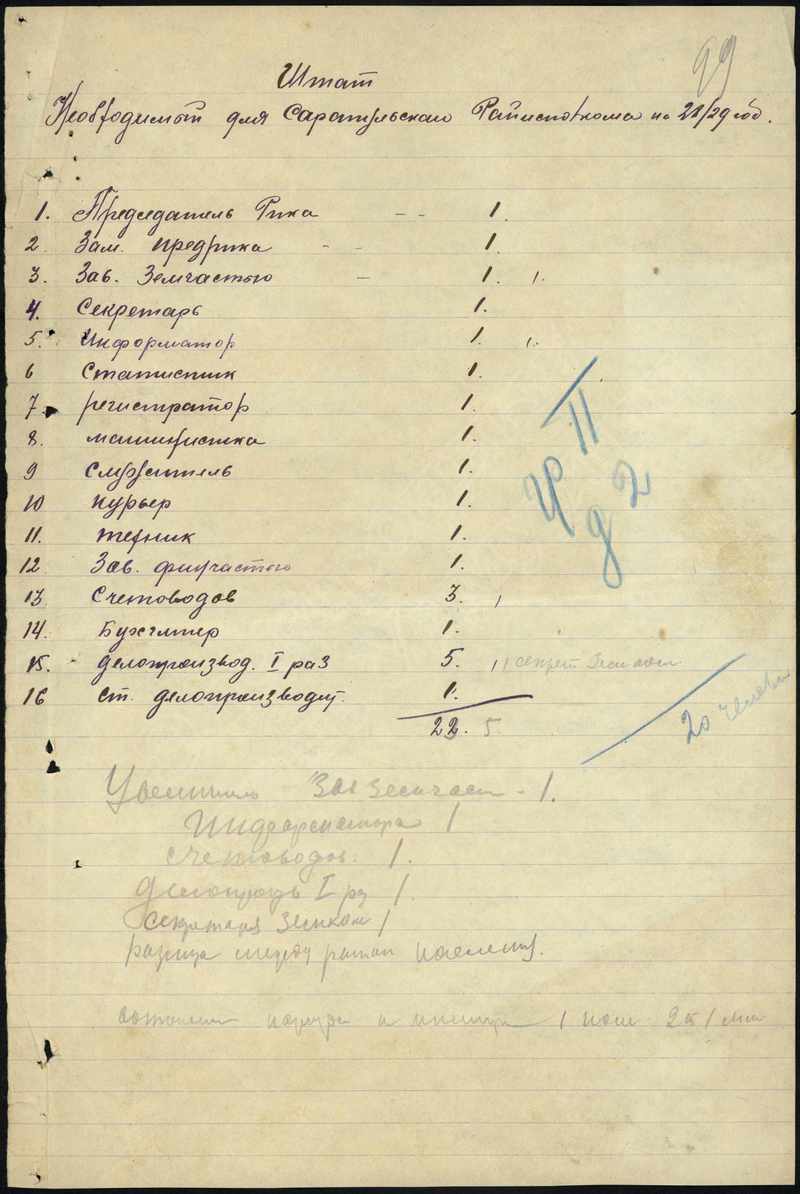 99
Штат
Необходимый для Сарапульскаго Райисполкома на 28/29 год.
1. Председатель Рика -- 1.
2 Зам. предрика -- 1.
3. Зав. Земчастью - 1. 1.
4. Секретарь 1.
5. Информатор 1. 1.
6 Статистик 1.
7. регистратор 1.
8. машинистка 1.
9 Служитель 1.
10 Курьер 1.
11. 1.
12 Зав. финчастью 1.
13 Счетоводов 3. 1
14. Бухгалтер 1.
15. делопроизвод. I раз 5. 1 1 секрет
16 ст. делопроизводит. 1.
22. 5
II
2
20 человек
Зав земчаст - 1.
Информатора 1
Счетоводов. 1.
I ра 1.
Секретаря Земком 1
разница между
1 2 1